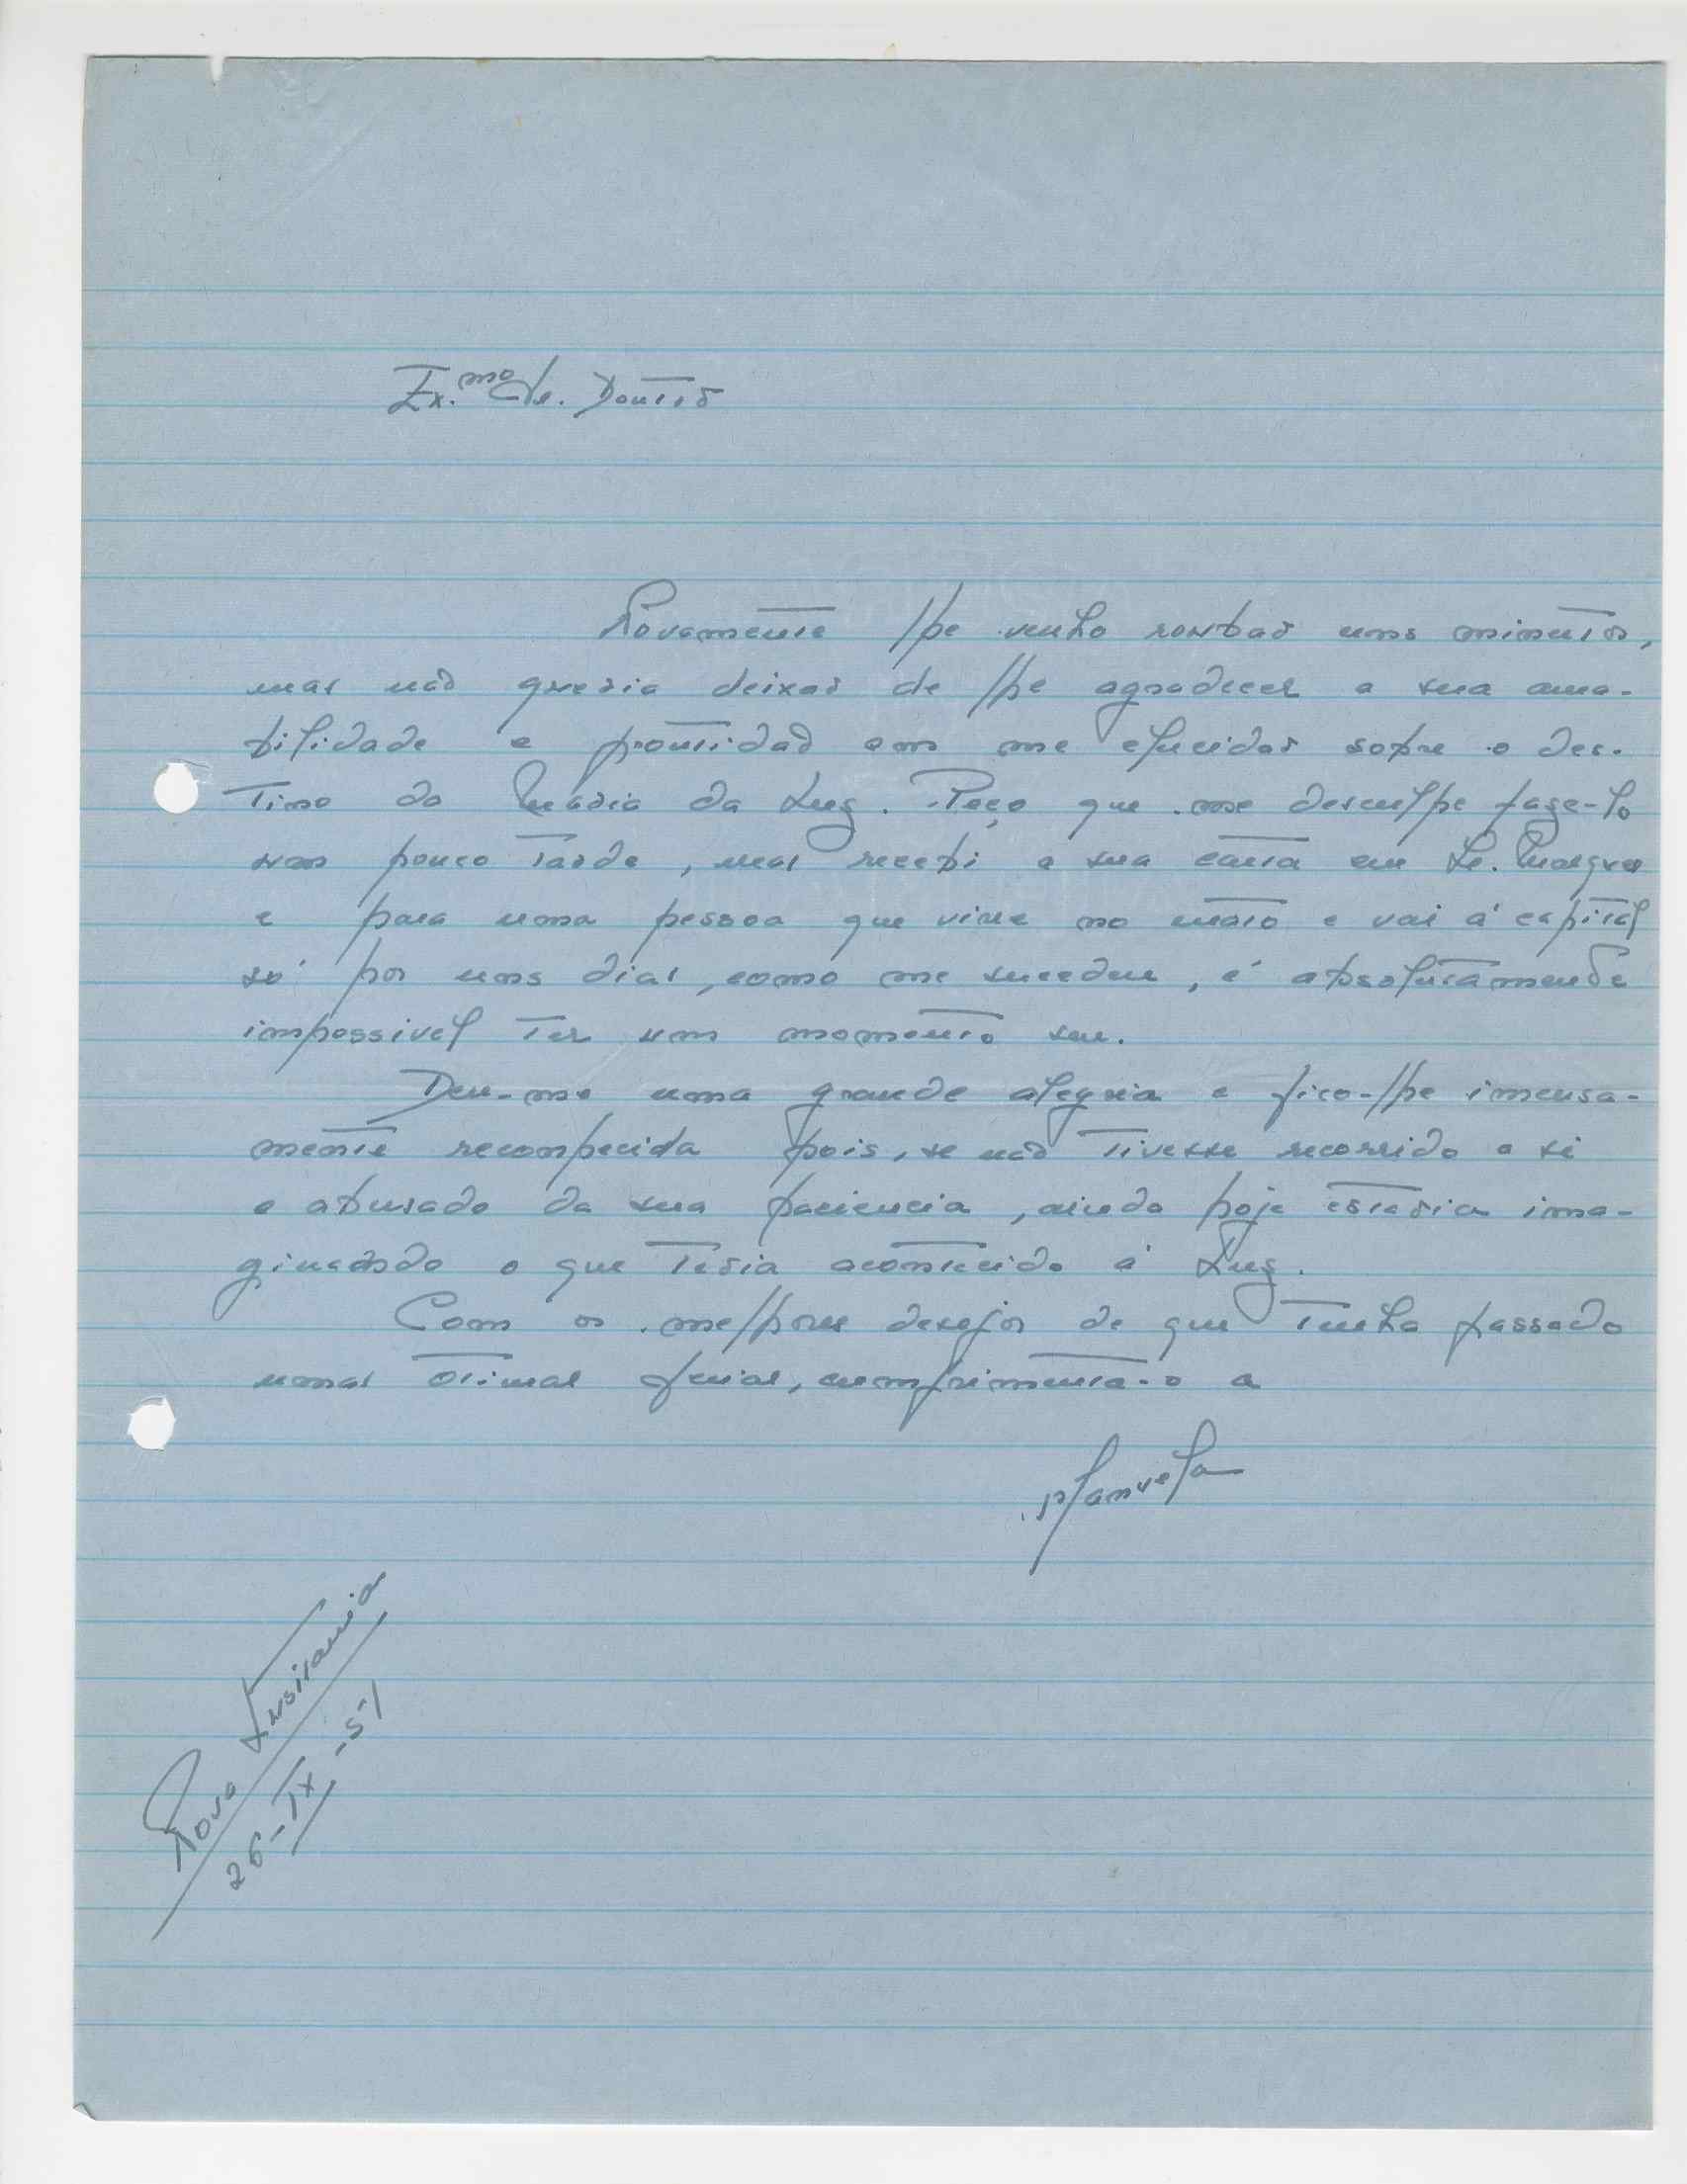 Ex.mo Sr. Doutor
Novamente lhe venho roubar uns minutos,
mas não queria deixar de lhe agradecer a sua ama-
bilidade e prontidão em me elucidar sobre o des-
tino da Maria da Luz. Peço que me desculpe faze-lo
um pouco tarde, mas recebi a sua carta em L. Marques
e para uma pessoa que vive no mato e vai á capital
só por uns dias, como me sucedeu, é absolutamente
impossivel ter um momento seu.
Deu-me uma grande alegria e fico-lhe imensa-
mente reconhecida pois, se não tivesse recorrido a si
e abusado da sua paciencia, ainda hoje estaria ima-
ginando o que teria acontecido á Luz.
Com os melhores desejos de que tenha passado
umas otimas ferias, cumprimenta-o a
Manuela
Nova Lusitania
26-IX-51